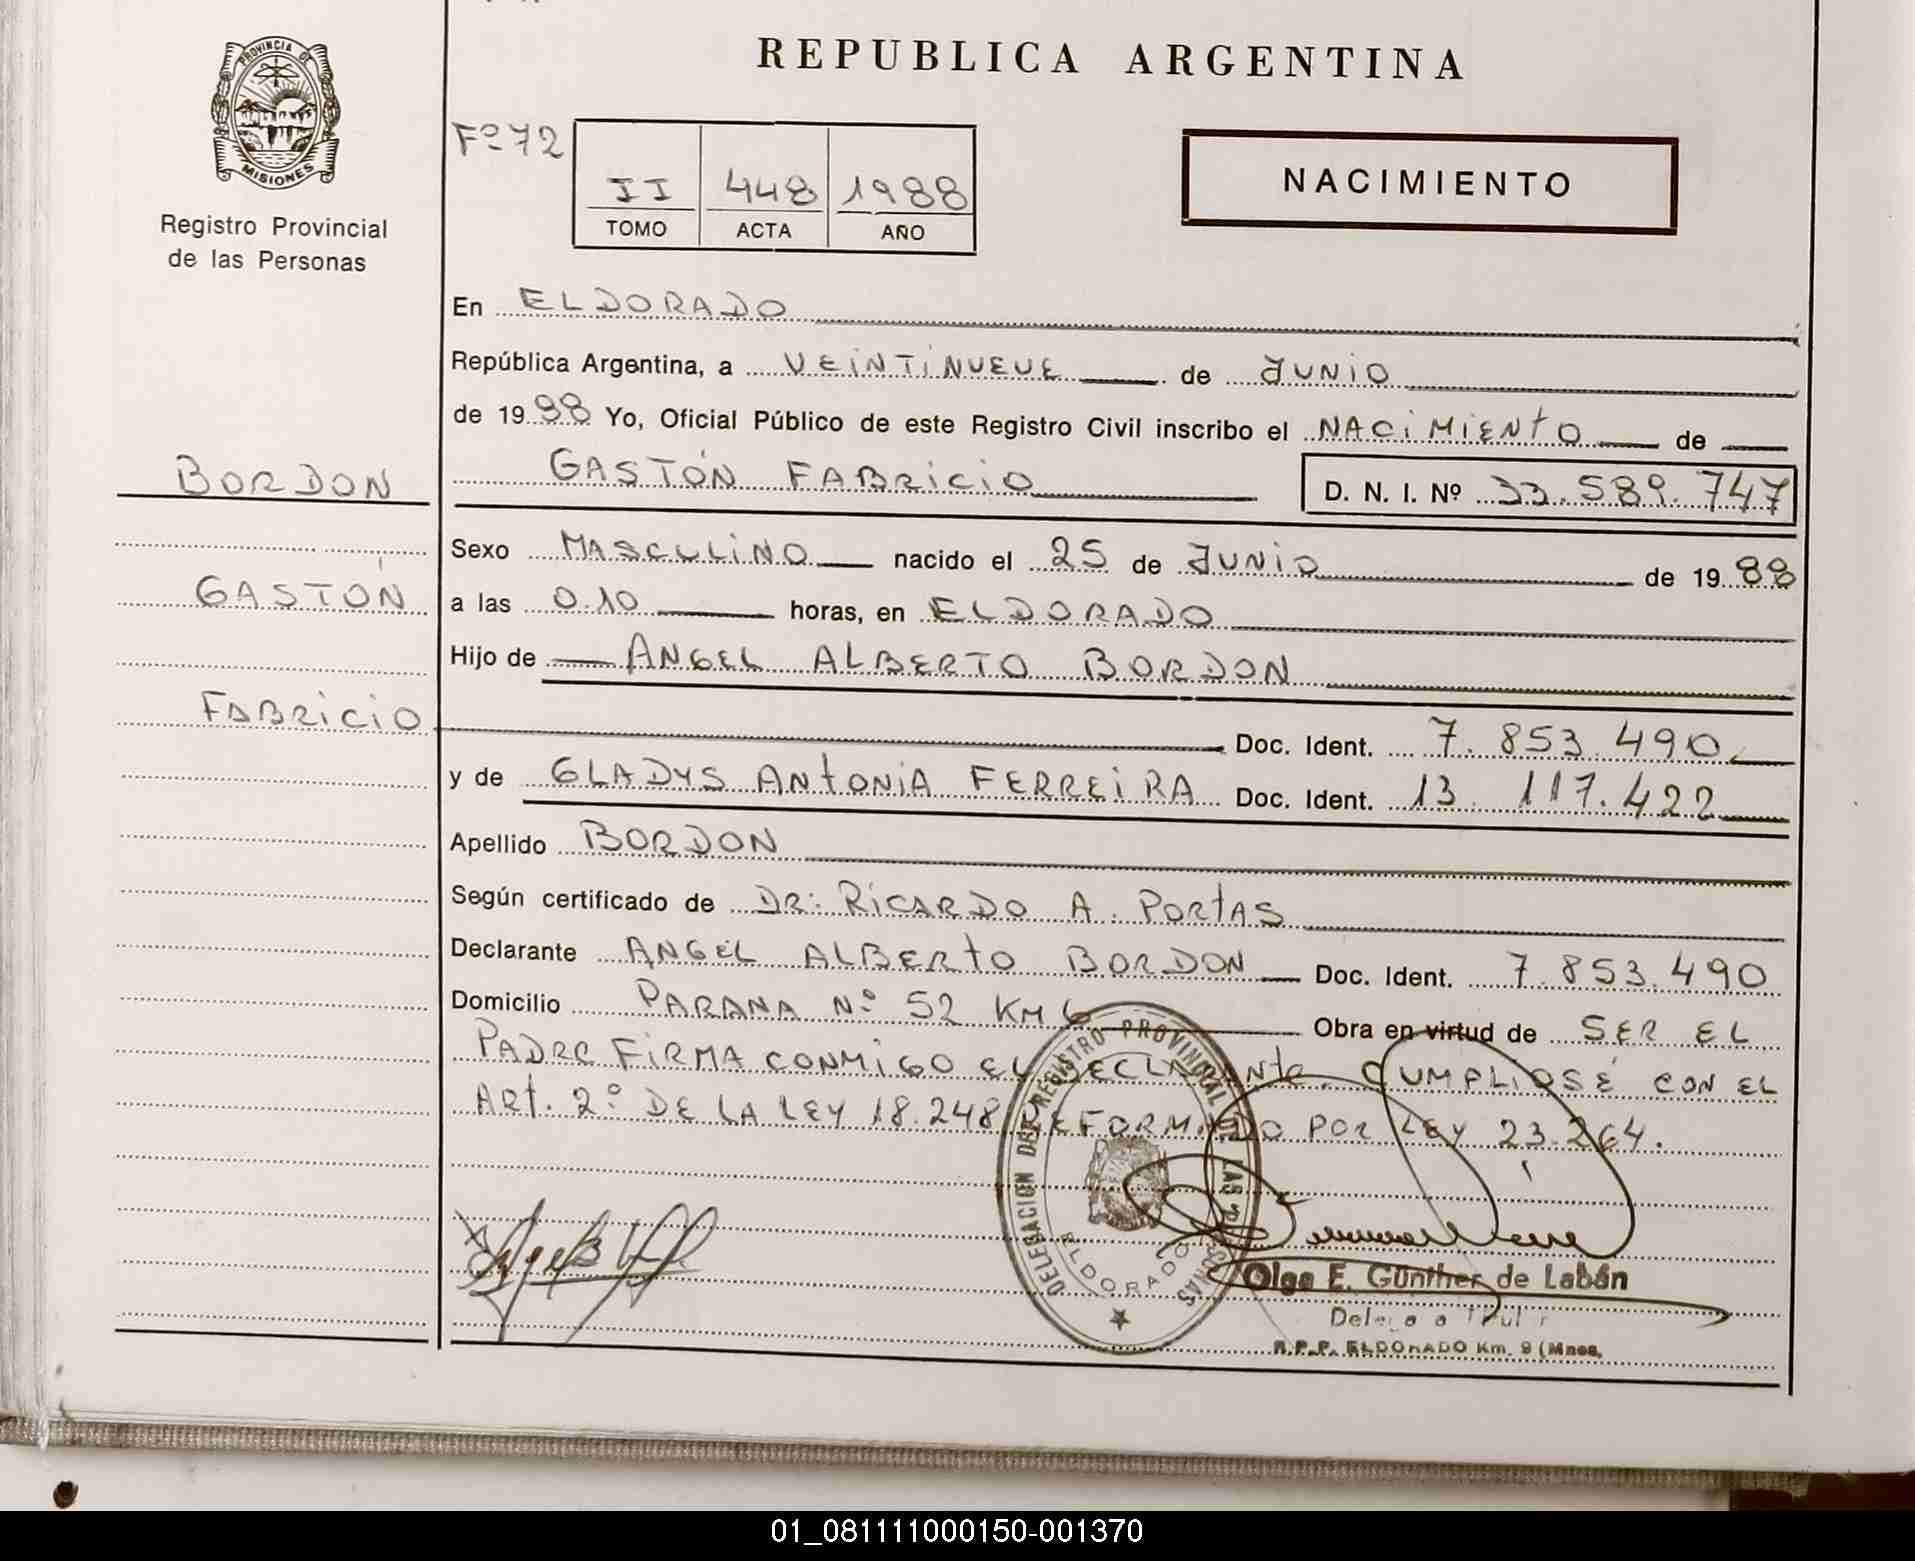 REPUBLICA ARGENTINA
PROVINCIA DE
MISIONES
Registro Provincial
de las Personas
Fº 72
II 448 1988
TOMO ACTA AÑO
NACIMIENTO
En ELDORADO
República Argentina, a VEINTINUEVE de JUNIO
de 1988 Yo, Oficial Público de este Registro Civil inscribo el NACIMIENTO de
BORDON
GASTÓN FABRICIO D. N. I. Nº 33.589.747
Sexo MASCULINO nacido el 25 de JUNIO de 1988
GASTÓN
a las 0.10 horas, en ELDORADO
Hijo de ANGEL ALBERTO BORDON
FABRICIO
Doc. Ident. 7.853.490
y de GLADYS ANTONIA FERREIRA Doc. Ident. 13.117.422
Apellido BORDON
Según certificado de DR: RICARDO A. PORTAS
Declarante ANGEL ALBERTO BORDON Doc. Ident. 7.853.490
Domicilio PARANA Nº 52 KM 6 Obra en virtud de SER EL
PADRE FIRMA CONMIGO EL DECLARANTE. CUMPLIOSE CON EL
ART. 2º DE LA LEY 18.248 REFORMADO POR LEY 23.264.
DELEGACION DEL REGISTRO PROVINCIAL DE LAS PERSONAS
ELDORADO
Olga E. Günther de Labán
Delegada Titular
R.P.P. ELDORADO Km. 9 (Mnes.
01_081111000150-001370